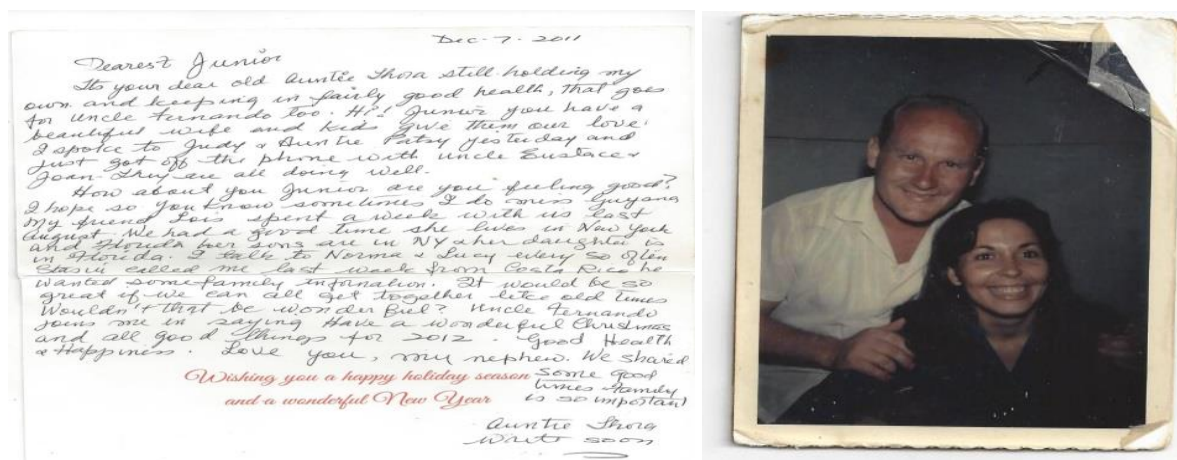 Dec-7-2011
Dearest Junior
Its your dear old Auntie Thora still holding my
own and keeping in fairly good health, that goes
for Uncle Fernando too. Hi! Junior you have a
beautiful wife and kids give them our love.
I spoke to Judy & Auntie Patsy yesterday and
just got off the phone with Uncle Eustace &
Joan. They are all doing well.
How about you Junior are you feeling good?
I hope so you know sometimes I do miss Guyana
My friend Lois spent a week with us last
August. We had a good time she lives in New York
and Florida her sons are in NY & her daughter is
in Florida. I talk to Norma & Lucy every so often
called me last week from Costa Rica he
wanted some family information. It would be so
great if we can all get together like old times
Wouldn't that be wonderful? Uncle Fernando
joins me in saying Have a wonderful Christmas
and all good things for 2012. Good Health
& Happiness. Love you, my nephew. We shared
some good
times family
is so important
Wishing you a happy holiday season
and a wonderful New Year
Auntie Thora
write soon